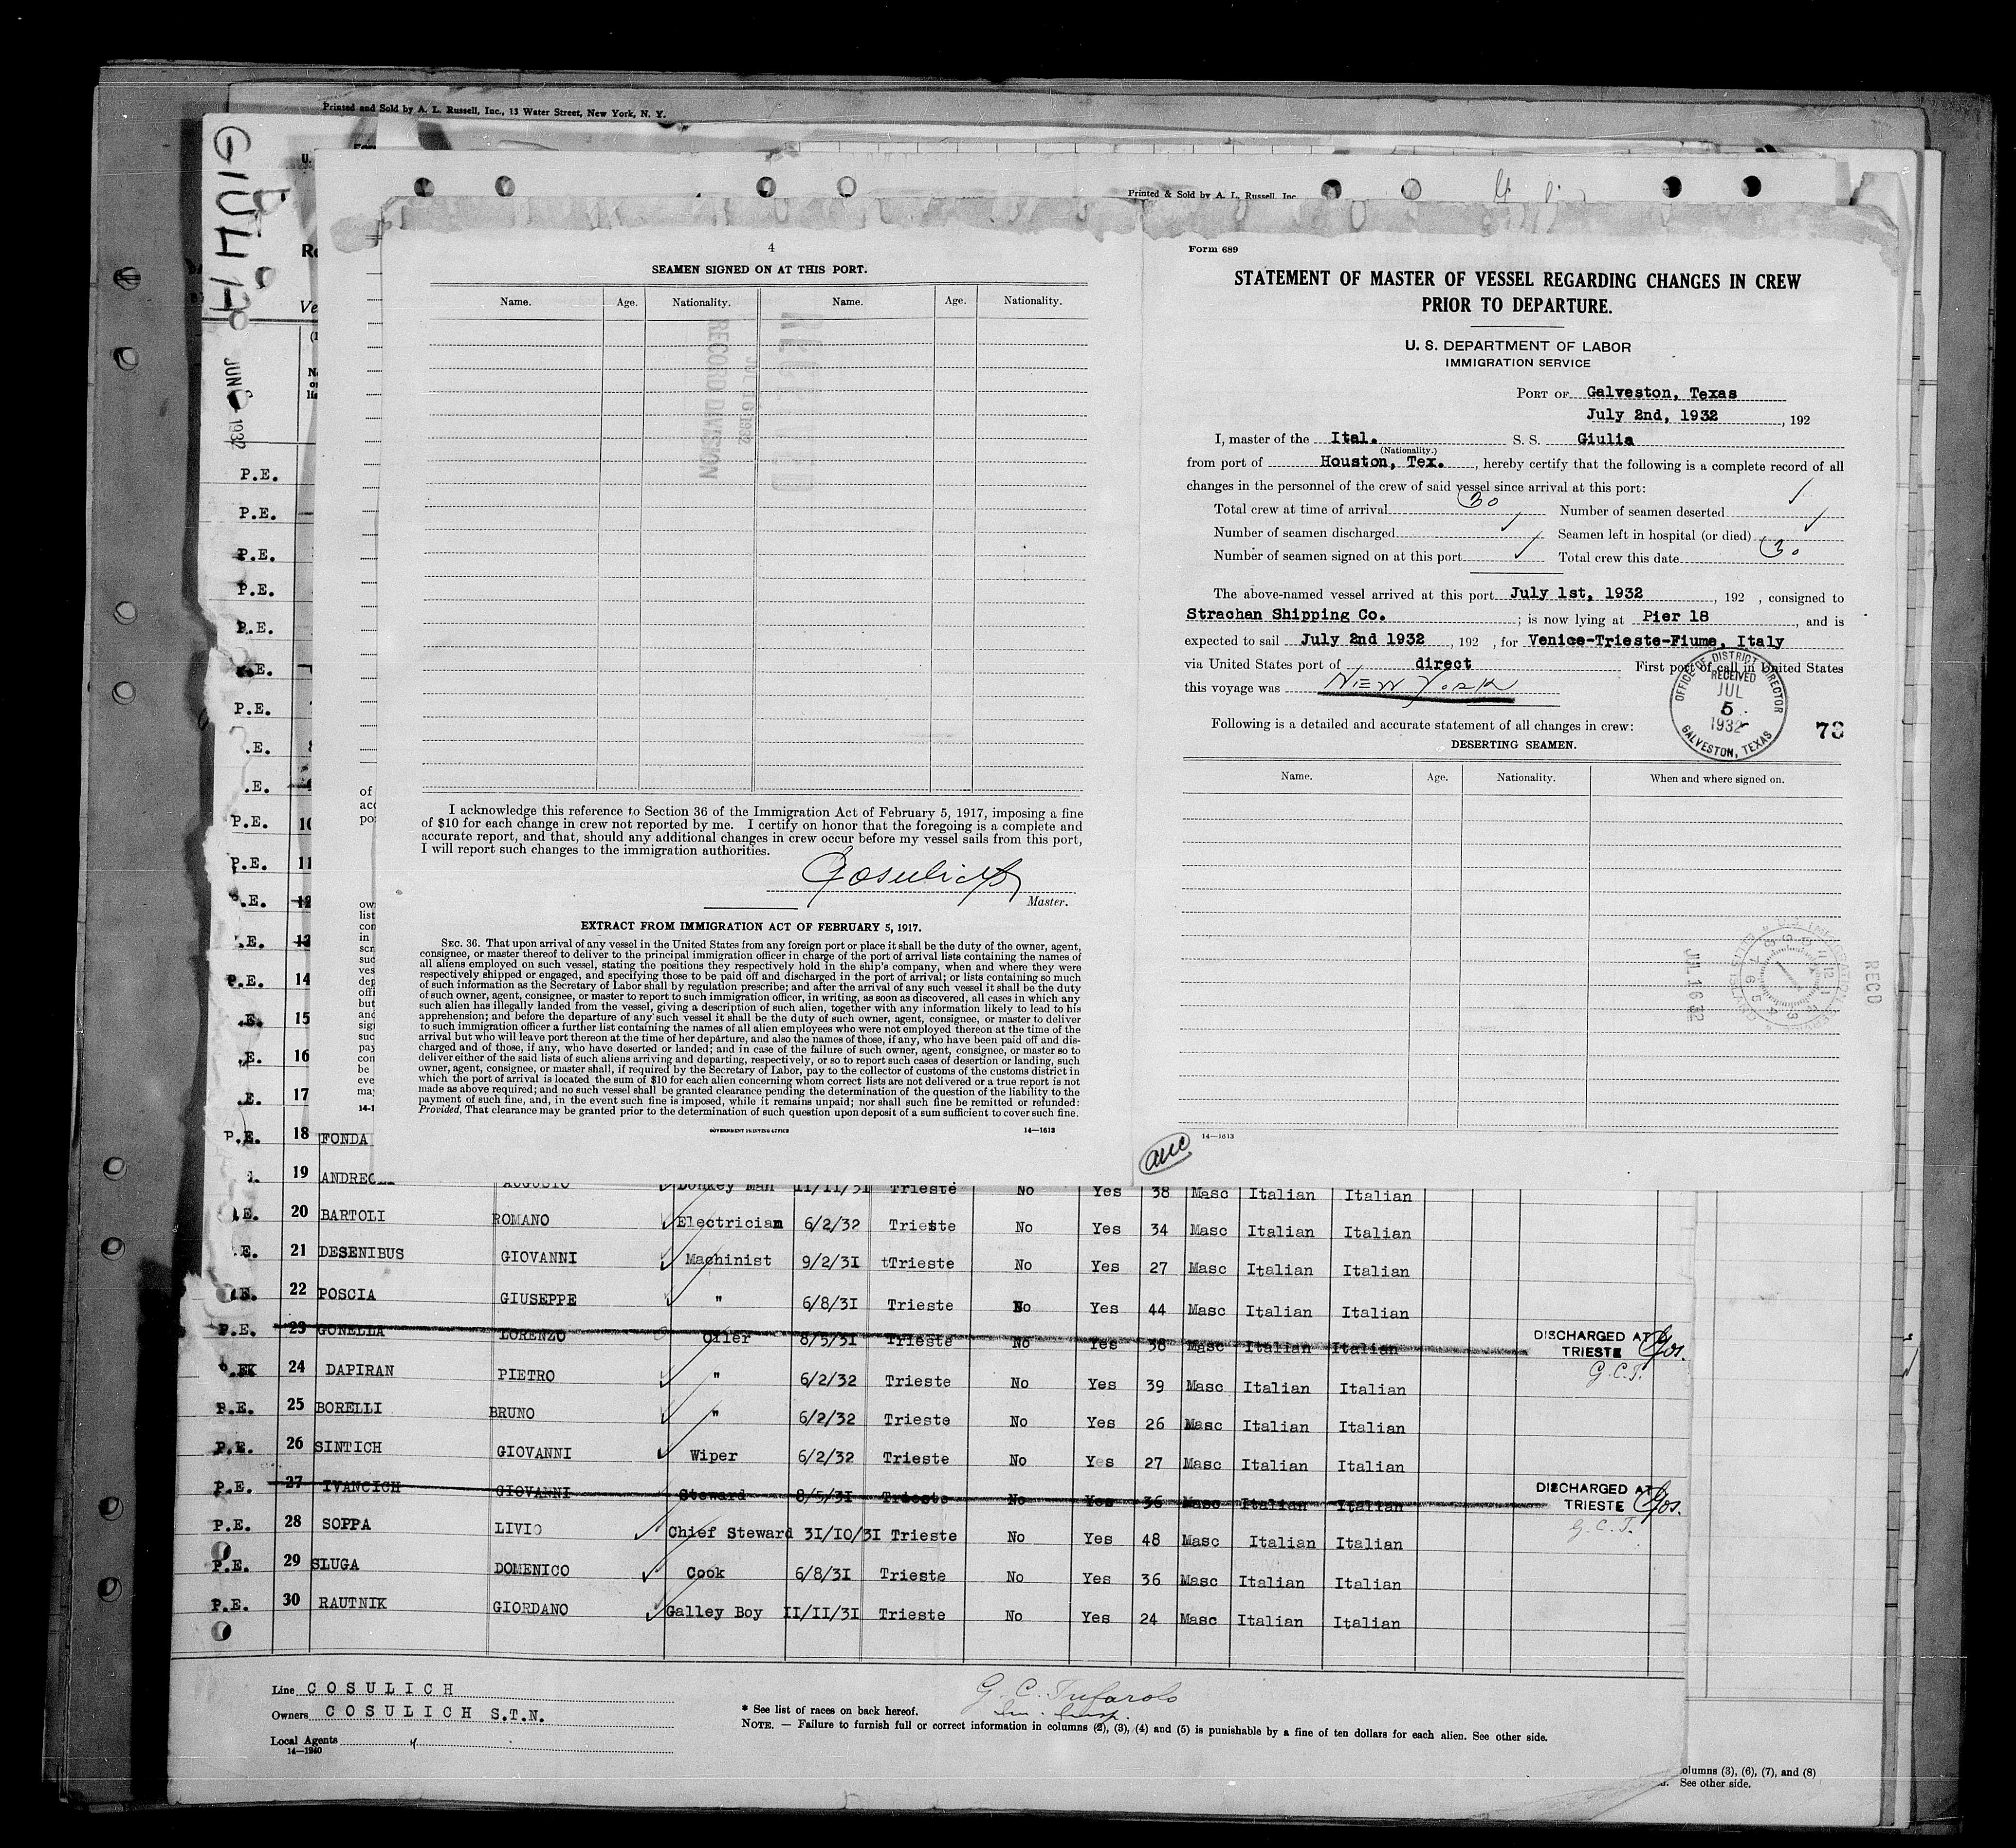 Printed and Sold by A. L. Russell, Inc., 13 Water Street, New York, N. Y.
GIULIA
JUN 1932
Printed & Sold by A. L. Russell, Inc.
4
SEAMEN SIGNED ON AT THIS PORT.
Name. Age. Nationality. Name. Age. Nationality.
RECEIVED
JUL 16 1932
RECORD DIVISION
I acknowledge this reference to Section 36 of the Immigration Act of February 5, 1917, imposing a fine
of $10 for each change in crew not reported by me. I certify on honor that the foregoing is a complete and
accurate report, and that, should any additional changes in crew occur before my vessel sails from this port,
I will report such changes to the immigration authorities.
Cosulich
Master.
EXTRACT FROM IMMIGRATION ACT OF FEBRUARY 5, 1917.
SEC. 36. That upon arrival of any vessel in the United States from any foreign port or place it shall be the duty of the owner, agent,
consignee, or master thereof to deliver to the principal immigration officer in charge of the port of arrival lists containing the names of
all aliens employed on such vessel, stating the positions they respectively hold in the ship's company, when and where they were
respectively shipped or engaged, and specifying those to be paid off and discharged in the port of arrival; or lists containing so much
of such information as the Secretary of Labor shall by regulation prescribe; and after the arrival of any such vessel it shall be the duty
of such owner, agent, consignee, or master to report to such immigration officer, in writing, as soon as discovered, all cases in which any
such alien has illegally landed from the vessel, giving a description of such alien, together with any information likely to lead to his
apprehension; and before the departure of any such vessel it shall be the duty of such owner, agent, consignee, or master to deliver
to such immigration officer a further list containing the names of all alien employees who were not employed thereon at the time of the
arrival but who will leave port thereon at the time of her departure, and also the names of those, if any, who have been paid off and dis-
charged and of those, if any, who have deserted or landed; and in case of the failure of such owner, agent, consignee, or master so to
deliver either of the said lists of such aliens arriving and departing, respectively, or so to report such cases of desertion or landing, such
owner, agent, consignee, or master shall, if required by the Secretary of Labor, pay to the collector of customs of the customs district in
which the port of arrival is located the sum of $10 for each alien concerning whom correct lists are not delivered or a true report is not
made as above required; and no such vessel shall be granted clearance pending the determination of the question of the liability to the
payment of such fine, and, in the event such fine is imposed, while it remains unpaid; nor shall such fine be remitted or refunded:
Provided, That clearance may be granted prior to the determination of such question upon deposit of a sum sufficient to cover such fine.
GOVERNMENT PRINTING OFFICE 14—1613
Form 689
STATEMENT OF MASTER OF VESSEL REGARDING CHANGES IN CREW
PRIOR TO DEPARTURE.
U. S. DEPARTMENT OF LABOR
IMMIGRATION SERVICE
PORT OF Galveston, Texas
July 2nd, 1932, 192
I, master of the Ital. S. S. Giulia
(Nationality.)
from port of Houston, Tex., hereby certify that the following is a complete record of all
changes in the personnel of the crew of said vessel since arrival at this port:
Total crew at time of arrival 30 Number of seamen deserted ✓
Number of seamen discharged ✓ Seamen left in hospital (or died) ✓
Number of seamen signed on at this port ✓ Total crew this date 30
The above-named vessel arrived at this port July 1st, 1932, 192 , consigned to
Strachan Shipping Co. ; is now lying at Pier 18, and is
expected to sail July 2nd 1932, 192 , for Venice-Trieste-Fiume, Italy
via United States port of direct First port of call in United States
this voyage was NEW YORK
OFFICE OF DISTRICT DIRECTOR
RECEIVED
JUL
5
1932
GALVESTON, TEXAS
73
Following is a detailed and accurate statement of all changes in crew:
DESERTING SEAMEN.
Name. Age. Nationality. When and where signed on.
JUL 16 32
RECD
14—1613
P.E. 10
P.E. 11
P.E. 12
.E. 13
P.E. 14
.E. 15
.E. 16
.E. 17
P.E. 18 FONDA
19 ANDREO AUGUSTO Donkey Man 11/11/31 Trieste No Yes 38 Masc Italian Italian
.E. 20 BARTOLI ROMANO Electrician 6/2/32 Trieste No Yes 34 Masc Italian Italian
.E. 21 DESENIBUS GIOVANNI Machinist 9/2/31 tTrieste No Yes 27 Masc Italian Italian
.E. 22 POSCIA GIUSEPPE " 6/8/31 Trieste No Yes 44 Masc Italian Italian
P.E. 23 GONELLA LORENZO Oiler 8/5/31 Trieste No Yes 38 Masc Italian Italian DISCHARGED AT TRIESTE Cos. G.C.T.
24 DAPIRAN PIETRO " 6/2/32 Trieste No Yes 39 Masc Italian Italian
P.E. 25 BORELLI BRUNO " 6/2/32 Trieste No Yes 26 Masc Italian Italian
P.E. 26 SINTICH GIOVANNI Wiper 6/2/32 Trieste No Yes 27 Masc Italian Italian
P.E. 27 IVANCICH GIOVANNI Steward 8/5/31 Trieste No Yes 36 Masc Italian Italian DISCHARGED AT TRIESTE Cos. G.C.T.
P.E. 28 SOPPA LIVIO Chief Steward 31/10/31 Trieste No Yes 48 Masc Italian Italian
P.E. 29 SLUGA DOMENICO Cook 6/8/31 Trieste No Yes 36 Masc Italian Italian
P.E. 30 RAUTNIK GIORDANO Galley Boy II/II/31 Trieste No Yes 24 Masc Italian Italian
Line COSULICH
Owners COSULICH S.T.N.
Local Agents
14—1940
G. C. Tufarolo
Im. Insp.
* See list of races on back hereof.
NOTE. — Failure to furnish full or correct information in columns (2), (3), (4) and (5) is punishable by a fine of ten dollars for each alien. See other side.
olumns (3), (6), (7), and (8)
See other side.